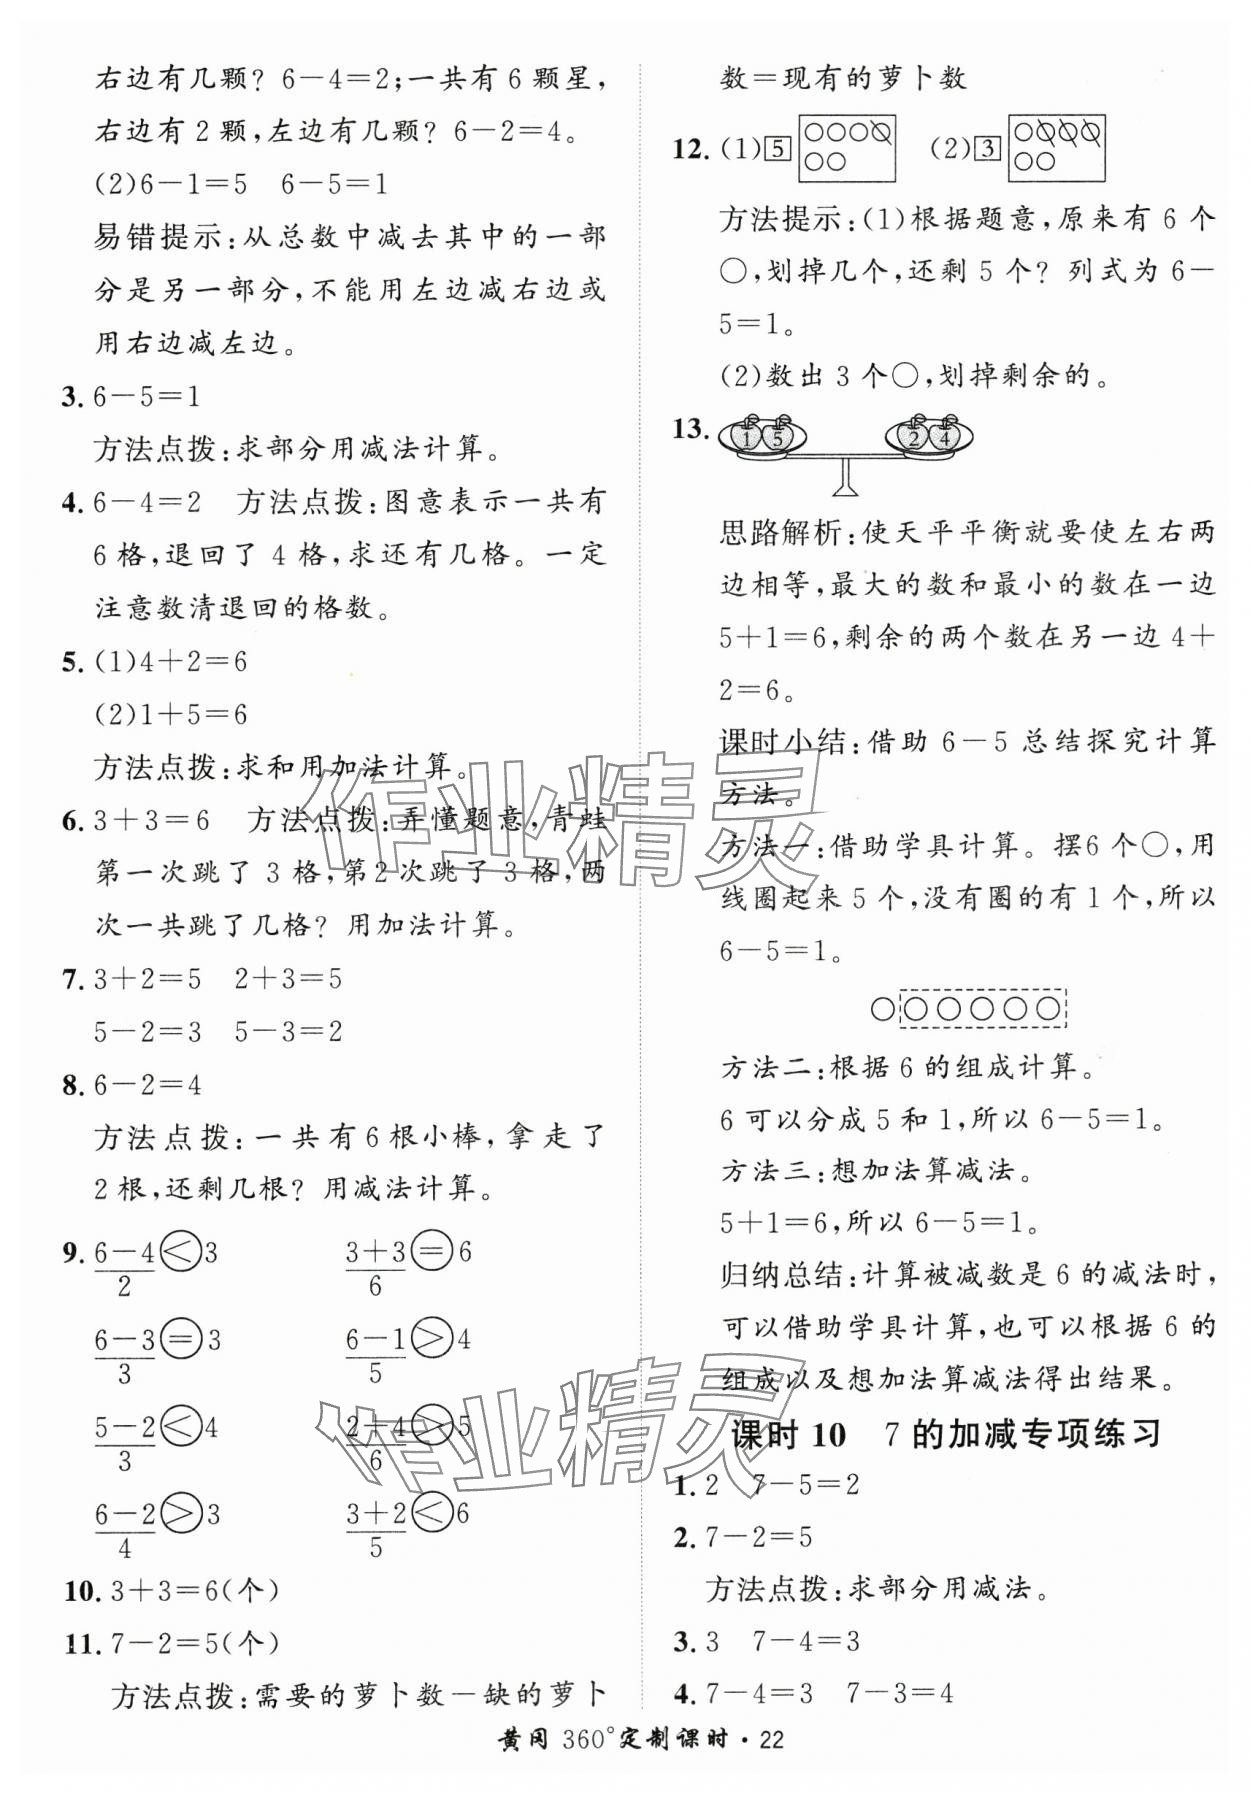 右边有几颗? 6－4＝2;一共有 6 颗星,
右边有 2 颗,左边有几颗? 6－2＝4。
(2)6－1＝5　6－5＝1
易错提示:从总数中减去其中的一部
分是另一部分,不能用左边减右边或
用右边减左边。
3. 6－5＝1
方法点拨:求部分用减法计算。
4. 6－4＝2　方法点拨:图意表示一共有
6 格,退回了 4 格,求还有几格。一定
注意数清退回的格数。
5. (1)4＋2＝6
(2)1＋5＝6
方法点拨:求和用加法计算。
6. 3＋3＝6　方法点拨:弄懂题意,青蛙
第一次跳了 3 格,第2次跳了 3 格,两
次一共跳了几格? 用加法计算。
7. 3＋2＝5　2＋3＝5
5－2＝3　5－3＝2
8. 6－2＝4
方法点拨:一共有 6 根小棒,拿走了
2 根,还剩几根? 用减法计算。
9. 6－4＜3　3＋3＝6
2　6
6－3＝3　6－1＞4
3　5
5－2＜4　2＋4＞5
3　6
6－2＞3　3＋2＜6
4　5
10. 3＋3＝6(个)
11. 7－2＝5(个)
方法点拨:需要的萝卜数－缺的萝卜
数＝现有的萝卜数
12. (1)5　(2)3
方法提示:(1)根据题意,原来有 6 个
○,划掉几个,还剩 5 个? 列式为 6－
5＝1。
(2)数出 3 个○,划掉剩余的。
13. 1 5 2 4
思路解析:使天平平衡就要使左右两
边相等,最大的数和最小的数在一边
5＋1＝6,剩余的两个数在另一边 4＋
2＝6。
课时小结:借助 6－5 总结探究计算
方法。
方法一:借助学具计算。摆6个○,用
线圈起来 5 个,没有圈的有 1 个,所以
6－5＝1。
方法二:根据 6 的组成计算。
6 可以分成 5 和 1,所以 6－5＝1。
方法三:想加法算减法。
5＋1＝6,所以 6－5＝1。
归纳总结:计算被减数是 6 的减法时,
可以借助学具计算,也可以根据 6 的
组成以及想加法算减法得出结果。
课时 10　7 的加减专项练习
1. 2　7－5＝2
2. 7－2＝5
方法点拨:求部分用减法。
3. 3　7－4＝3
4. 7－4＝3　7－3＝4
黄冈 360°定制课时·22
作业精灵
作业精灵